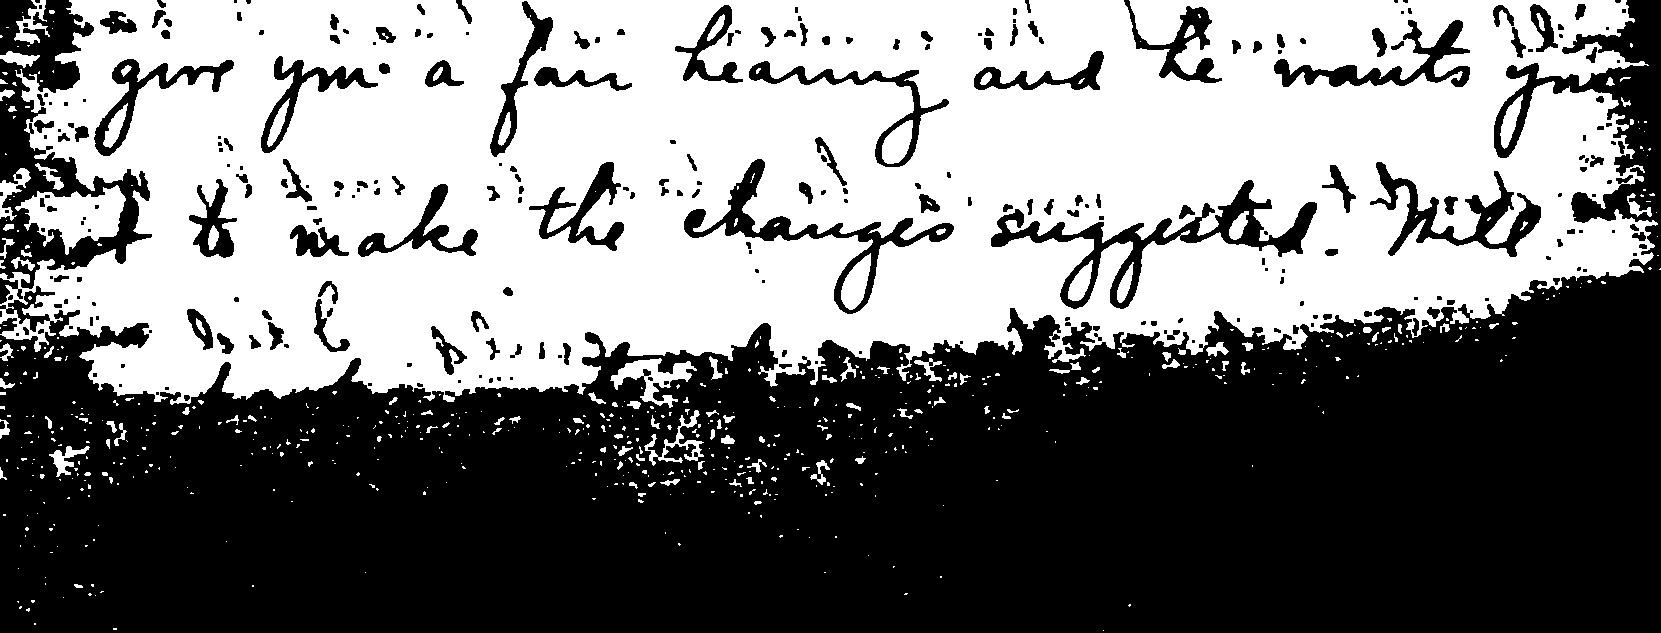 to give you a fair hearing and he wants you
not to make the changes suggested. Will